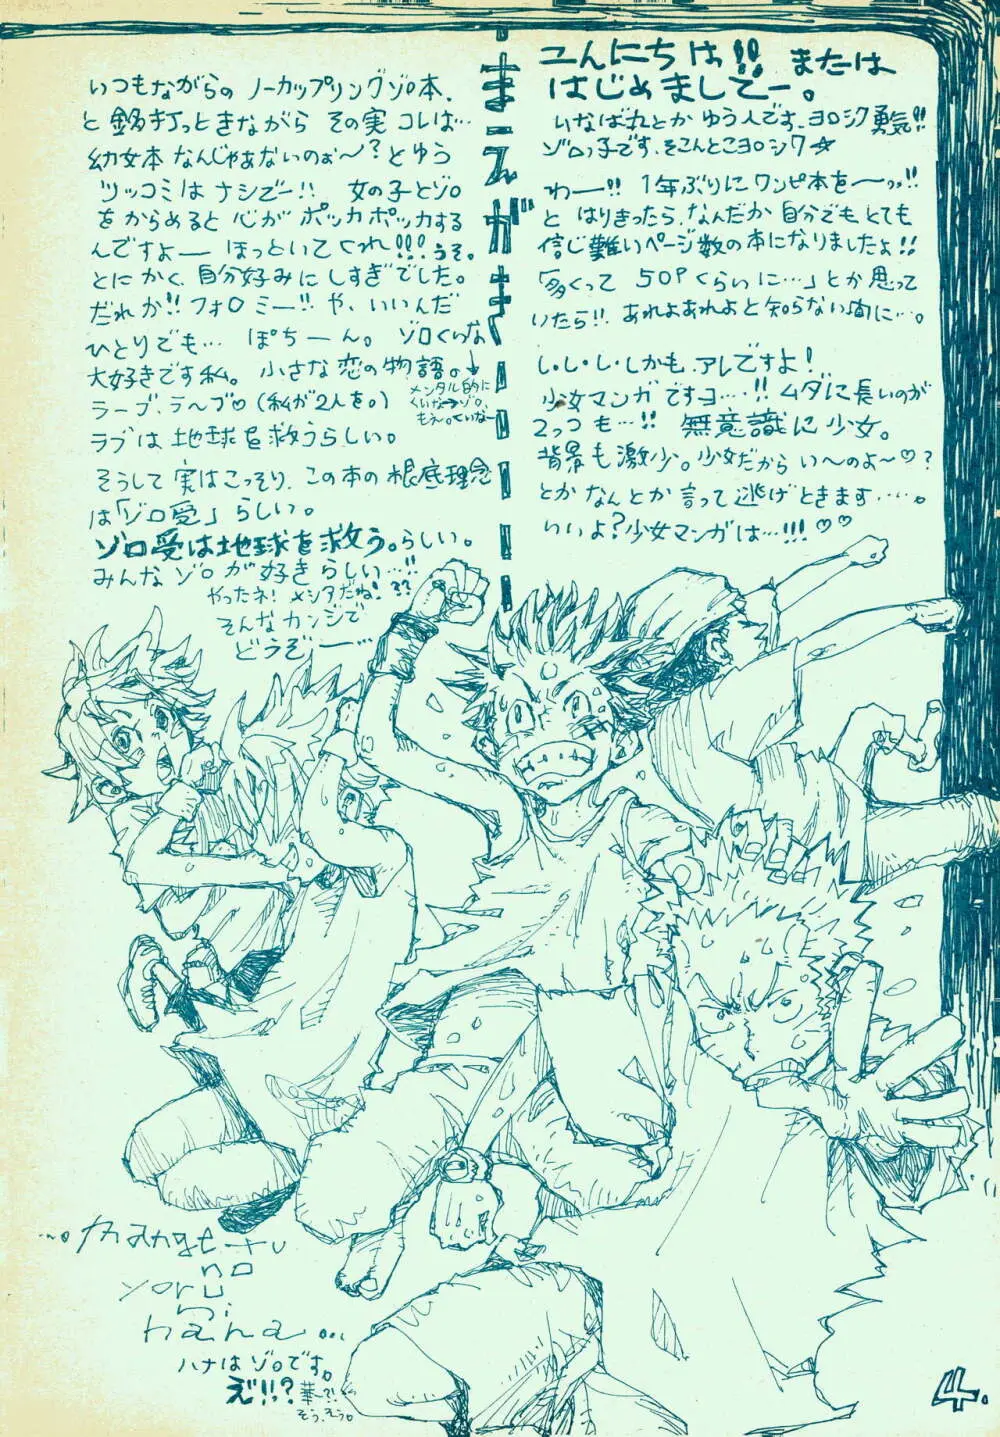 こんにちは!! または
はじめましてー。
いなば丸とかゆう人です、ヨロシク勇気!!
ゾロっ子です、そこんとこヨロシク☆
わー!! 1年ぶりにワンピ本をーっっ!!
と はりきったら、なんだか 自分でもとても
信じ難いページ数の本になりましたよ!!
「多くって 50Pくらいに…」とか思って
いたら!! あれよあれよと知らない間に…。
し・し・し・しかも、アレですよ!
少女マンガですヨ…!! ムダに長いのが
2っつも…!! 無意識に少女。
背景も激少。少女だからい〜のよ〜♡?
とかなんとか言って逃げときます……。
いいよ?少女マンガは…!!! ♡♡
まえがき
いつもながらの ノーカップリングゾロ本、
と 銘打っときながら その実 コレは…
幼女本 なんじゃあないのぉ〜?とゆう
ツッコミは ナシでー!! 女の子とゾロ
をからめると 心が ポッカポッカする
んですよー ほっといてくれ!!! うそ。
とにかく、自分好みにしすぎでした。
だれか!! フォロミー!! や、いいんだ
ひとりでも… ぽちーん。 ゾロくいな
大好きです私。 小さな恋の物語。
メンタル的に
くいな→ゾロ。
もえ。くいなー
ラーブ、ラ〜ブ♡(私が2人を。)
ラブは 地球を救うらしい。
そうして 実はこっそり、この本の根底理念
は「ゾロ受」らしい。
ゾロ受は地球を救う。らしい。
みんな ゾロが好きらしい…!!
やったネ! メシアだね!??
そんなカンジで
どうぞー…
...no mange-tu
no
yoru
ni
hana...
ハナはゾロです。
え!!? 華ー?!
そう、そう。
4.